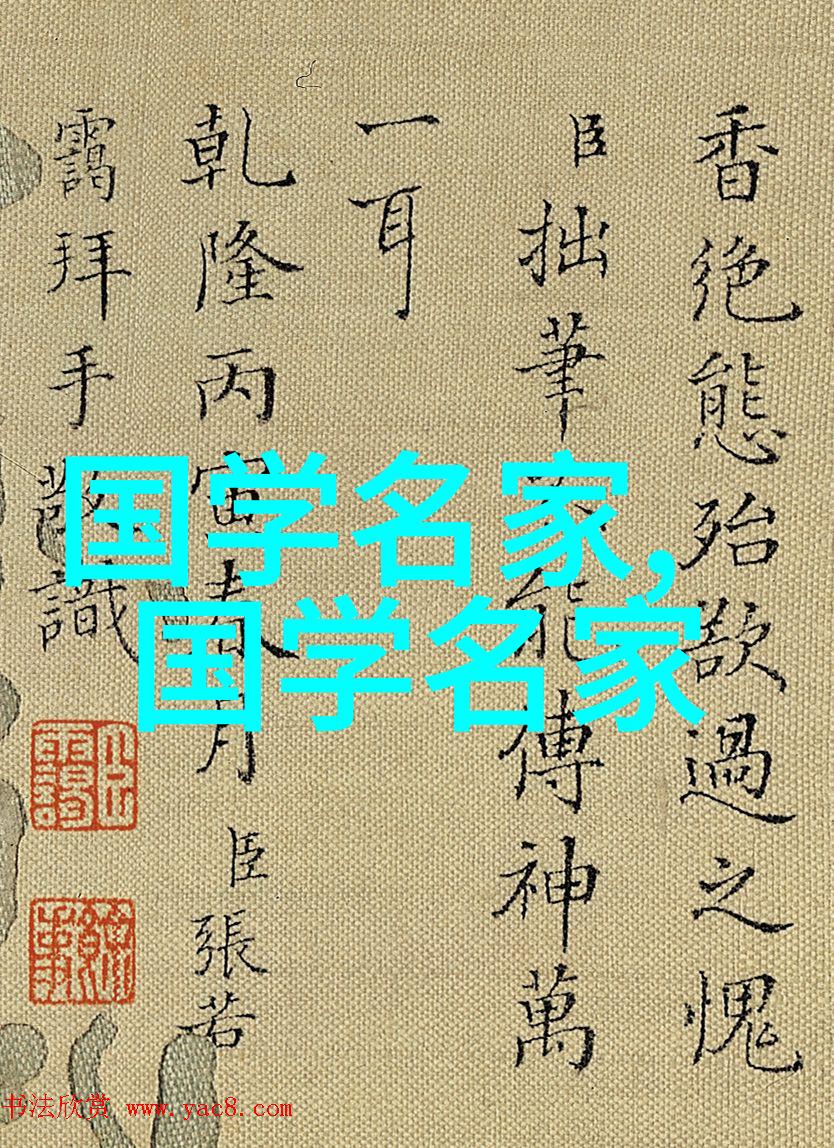 香絶態殆欲過之愧
臣拙筆不能傳神萬
一耳
乾隆丙寅春月臣張若
靄拜手敬識
国学名家,
国学名家
书法欣赏 www.yac8.com